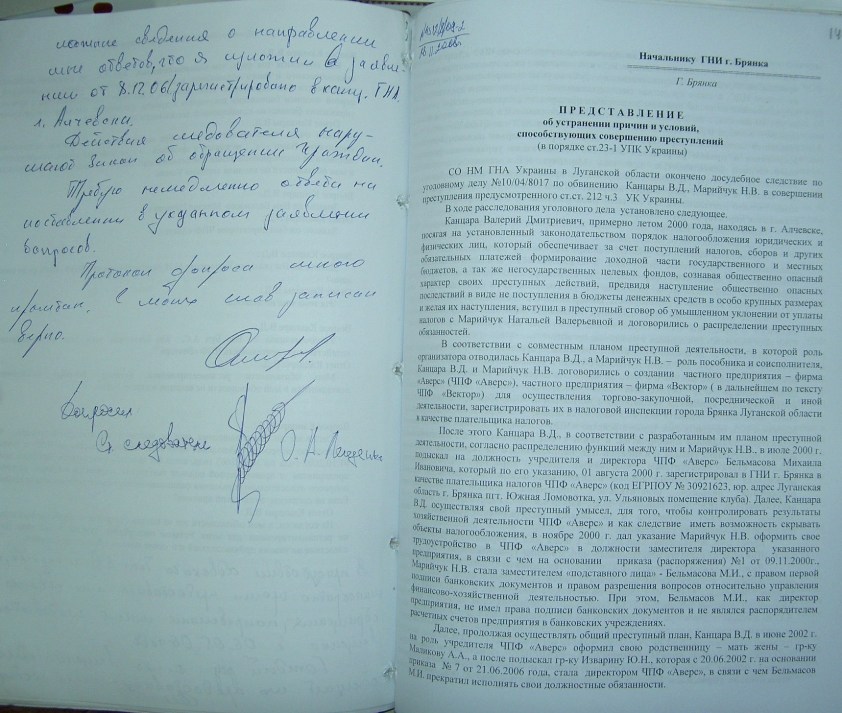 ложные сведения о направлении
мне ответов, что я изложил в заявле-
нии от 8.12.06 /зарегистрировано в канц. ГНА
г. Алчевска.
Действия следователя нару-
шают Закон об обращении граждан.
Требую немедленно ответа на
поставленные в указанном заявлении
вопросов.
Протокол допроса мною
прочитан, с моих слов записан
верно.
Допросил
Ст. следователь
О. А.
14
Начальнику ГНИ г. Брянка
Г. Брянка
ПРЕДСТАВЛЕНИЕ
об устранении причин и условий,
способствующих совершению преступлений
(в порядке ст.23-1 УПК Украины)
СО НМ ГНА Украины в Луганской области окончено досудебное следствие по
уголовному делу №10/04/8017 по обвинению Канцары В.Д., Марийчук Н.В. в совершении
преступления предусмотренного ст.ст. 212 ч.3 УК Украины.
В ходе расследования уголовного дела установлено следующее.
Канцара Валерий Дмитриевич, примерно летом 2000 года, находясь в г. Алчевске,
посягая на установленный законодательством порядок налогообложения юридических и
физических лиц, который обеспечивает за счет поступлений налогов, сборов и других
обязательных платежей формирование доходной части государственного и местных
бюджетов, а так же негосударственных целевых фондов, сознавая общественно опасный
характер своих преступных действий, предвидя наступление общественно опасных
последствий в виде не поступления в бюджеты денежных средств в особо крупных размерах
и желая их наступления, вступил в преступный сговор об умышленном уклонении от уплаты
налогов с Марийчук Натальей Валерьевной и договорились о распределении преступных
обязанностей.
В соответствии с совместным планом преступной деятельности, в которой роль
организатора отводилась Канцара В.Д., а Марийчук Н.В. – роль пособника и соисполнителя,
Канцара В.Д. и Марийчук Н.В. договорились о создании частного предприятия – фирма
«Аверс» (ЧПФ «Аверс»), частного предприятия – фирма «Вектор» ( в дальнейшем по тексту
ЧПФ «Вектор») для осуществления торгово-закупочной, посреднической и иной
деятельности, зарегистрировать их в налоговой инспекции города Брянка Луганской области
в качестве плательщика налогов.
После этого Канцара В.Д., в соответствии с разработанным им планом преступной
деятельности, согласно распределению функций между ним и Марийчук Н.В., в июле 2000 г.
подыскал на должность учредителя и директора ЧПФ «Аверс» Бельмасова Михаила
Ивановича, который по его указанию, 01 августа 2000 г. зарегистрировал в ГНИ г. Брянка в
качестве плательщика налогов ЧПФ «Аверс» (код ЕГРПОУ № 30921623, юр. адрес Луганская
область г. Брянка пгт. Южная Ломоватка, ул. Ульяновых помещение клуба). Далее, Канцара
В.Д. осуществляя свой преступный умысел, для того, чтобы контролировать результаты
хозяйственной деятельности ЧПФ «Аверс» и как следствие иметь возможность скрывать
объекты налогообложения, в ноябре 2000 г. дал указание Марийчук Н.В. оформить свое
трудоустройство в ЧПФ «Аверс» в должности заместителя директора указанного
предприятия, в связи с чем на основании приказа (распоряжения) №1 от 09.11.2000г.,
Марийчук Н.В. стала заместителем «подставного лица» - Бельмасова М.И., с правом первой
подписи банковских документов и правом разрешения вопросов относительно управления
финансово-хозяйственной деятельностью. При этом, Бельмасов М.И., как директор
предприятия, не имел права подписи банковских документов и не являлся распорядителем
расчетных счетов предприятия в банковских учреждениях.
Далее, продолжая осуществлять общий преступный план, Канцара В.Д. в июне 2002 г.
на роль учредителя ЧПФ «Аверс» оформил свою родственницу – мать жены – гр-ку
Маликову А.А., а после подыскал гр-ку Изварину Ю.Н., которая с 20.06.2002 г. на основании
приказа № 7 от 21.06.2006 года, стала директором ЧПФ «Аверс», в связи с чем Бельмасов
М.И. прекратил исполнять свои должностные обязанности.